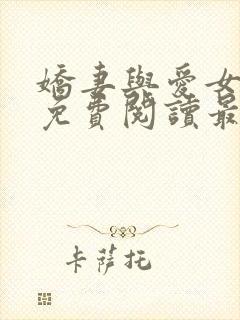 嬌妻與愛女
免費閱讀最
卡薩托